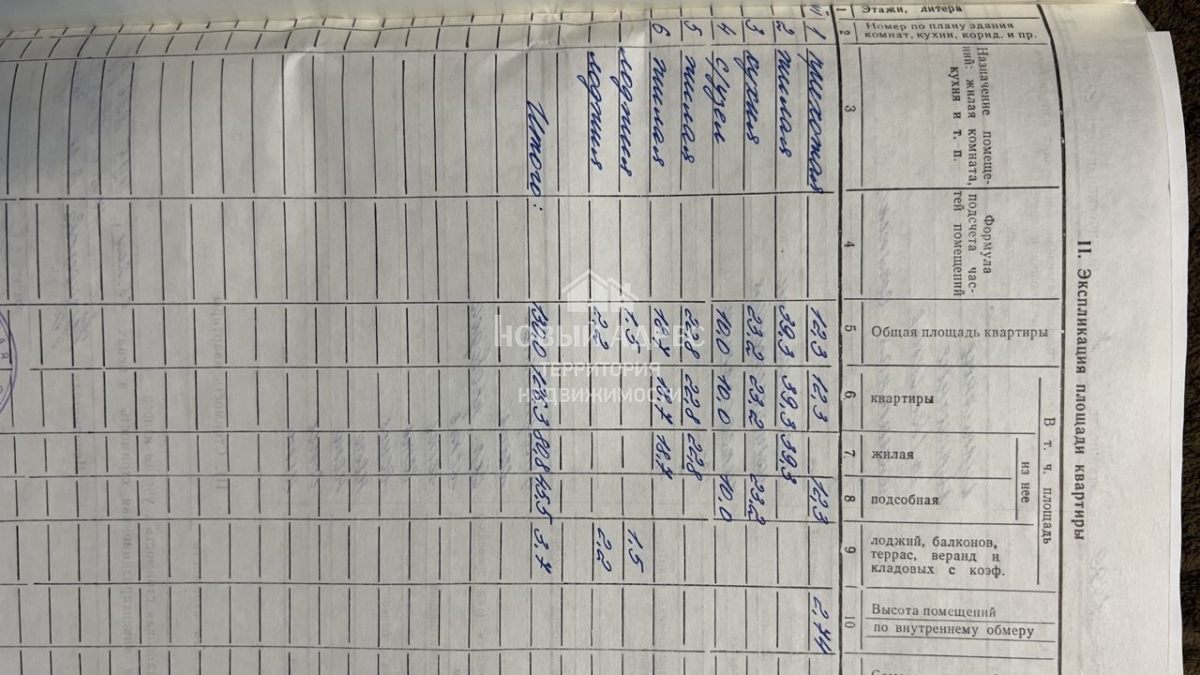 II. Экспликация площади квартиры
Этажи, литера
Номер по плану здания
комнат, кухни, корид. и пр.
Назначение помеще-
ний: жилая комната,
кухня и т. п.
Формула
подсчета час-
тей помещений
Общая площадь квартиры
В т. ч. площадь
квартиры
из нее
жилая
подсобная
лоджий, балконов,
террас, веранд и
кладовых с коэф.
Высота помещений
по внутреннему обмеру
1 2 3 4 5 6 7 8 9 10
1 прихожая 12,3 12,3 12,3 2,74
2 жилая 39,3 39,3 39,3
3 кухня 23,2 23,2 23,2
4 с/узел 10.0 10.0 10.0
5 жилая 22,8 22,8 22,8
6 жилая 18,7 18,7 18,7
лоджия 1.5 1.5
лоджия 2.2 2.2
Итого: 130,0 126,3 80,8 45,5 3.7
НОВЫЙ АДРЕС
ТЕРРИТОРИЯ
НЕДВИЖИМОСТИ